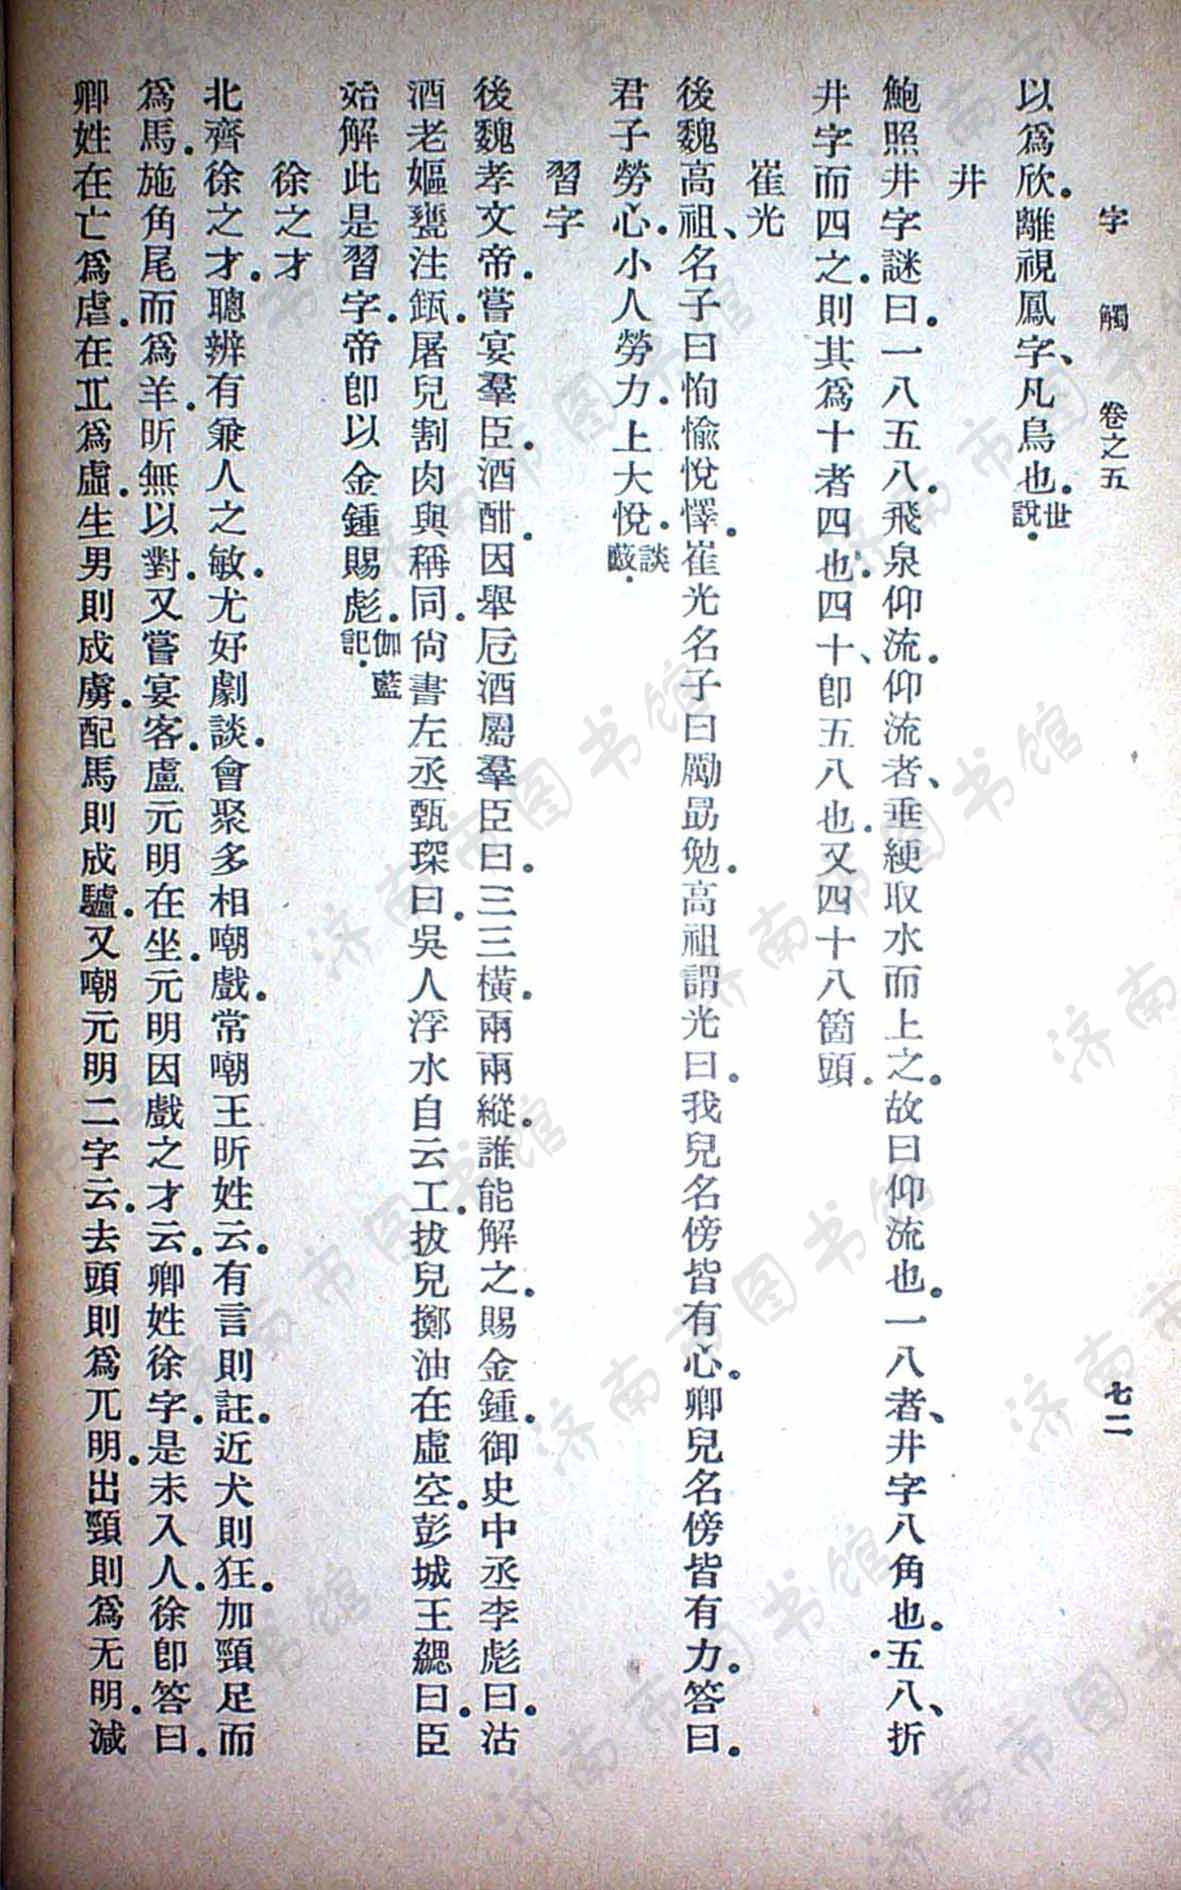 字　觸　卷之五　七二
以爲欣。離視鳳字、凡鳥也。世說。
井
鮑照井字謎曰。一八五八。飛泉仰流。仰流者、垂綆取水而上之。故曰仰流也。一八者、井字八角也。五八、折
井字而四之。則其爲十者四也。四十、卽五八也。又四十八箇頭。
崔光
後魏高祖、名子曰恂愉悅懌。崔光名子曰勵勗勉。高祖謂光曰。我兒名傍皆有心。卿兒名傍皆有力。答曰。
君子勞心。小人勞力。上大悅。談藪。
習字
後魏孝文帝。嘗宴羣臣。酒酣。因舉巵酒屬羣臣曰。三三橫。兩兩縱。誰能解之。賜金鍾。御史中丞李彪曰。沽
酒老嫗甕注㼛。屠兒割肉與稱同。尙書左丞甄琛曰。吳人浮水自云工。拔兒擲油在虛空。彭城王勰曰。臣
始解此是習字。帝卽以金鍾賜彪。伽藍記。
徐之才
北齊徐之才。聰辨有兼人之敏。尤好劇談。會聚多相嘲戲。常嘲王昕姓云。有言則註。近犬則狂。加頸足而
爲馬。施角尾而爲羊。昕無以對。又嘗宴客。盧元明在坐。元明因戲之才云。卿姓徐字。是未入人。徐卽答曰。
卿姓在亡爲虐。在丘爲虛。生男則成虜。配馬則成驢。又嘲元明二字云。去頭則爲兀明。出頸則爲无明。減
济南市图书馆